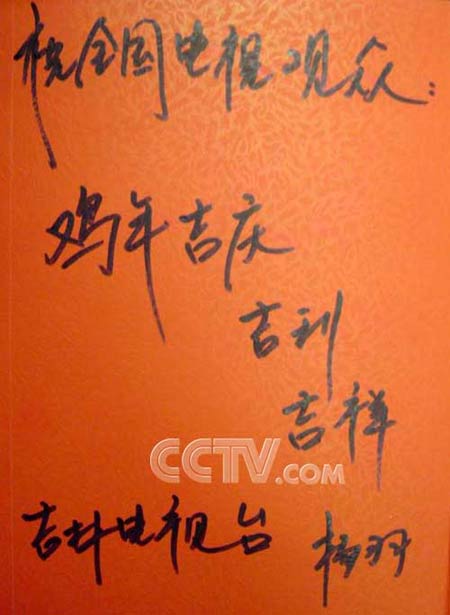 祝全国电视观众：
鸡年吉庆
吉利
吉祥
CCTV.COM
吉林电视台 杨羽